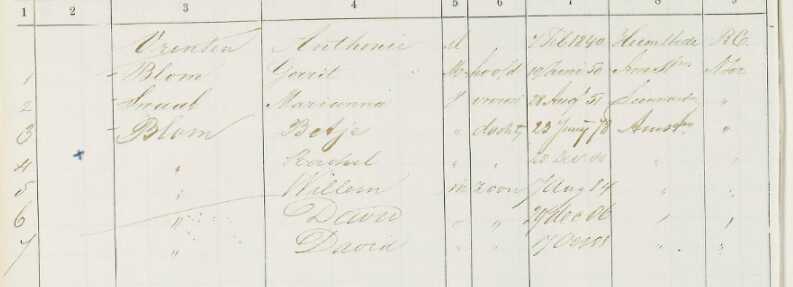 1 2 3 4 5 6 7 8 9
Vrenten Anthonie M 7 Feb 1840 Heemstede RC
1 Blom Gerrit M hoofd 19 Juni 50 Amst
2 Snaab Marianna V vrouw 28 Aug 51 "
3 Blom Betje " docht, 23 Juny 78 Amst "
4 " Rachel " " 20 " "
5 " Willem m zoon 7 Aug 84 " "
6 " David " " 29 Dec 86 " "
7 " David " " 17 " "